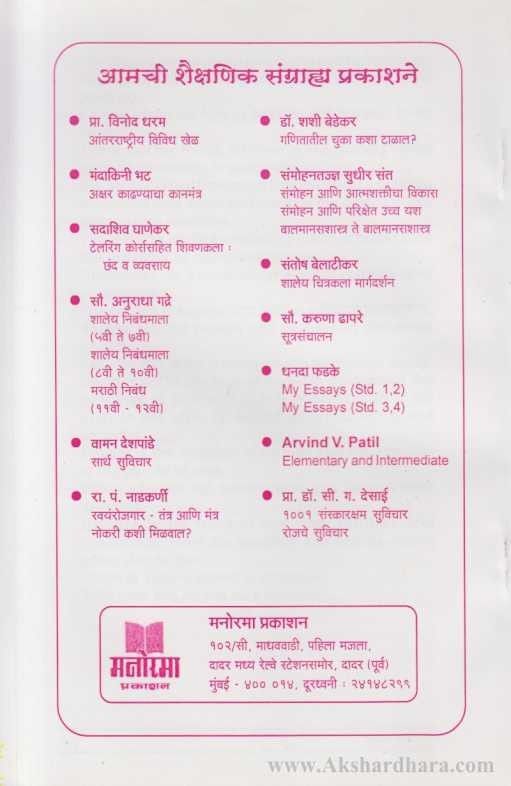 आमची शैक्षणिक संग्राह्य प्रकाशने
● प्रा. विनोद धरम
आंतरराष्ट्रीय विविध खेळ
● मंदाकिनी भट
अक्षर काढण्याचा कानमंत्र
● सदाशिव घाणेकर
टेलरिंग कोर्ससहित शिवणकला :
छंद व व्यवसाय
● सौ. अनुराधा गद्रे
शालेय निबंधमाला
(५वी ते ७वी)
शालेय निबंधमाला
(८वी ते १०वी)
मराठी निबंध
(११वी - १२वी)
● वामन देशपांडे
सार्थ सुविचार
● रा. पं. नाडकर्णी
स्वयंरोजगार - तंत्र आणि मंत्र
नोकरी कशी मिळवाल?
● डॉ. शशी बेडेकर
गणितातील चुका कशा टाळाल?
● संमोहनतज्ज्ञ सुधीर संत
संमोहन आणि आत्मशक्तीचा विकास
संमोहन आणि परिक्षेत उच्च यश
बालमानसशास्त्र ते बालमानसशास्त्र
● संतोष बेलाटीकर
शालेय चित्रकला मार्गदर्शन
● सौ. करुणा ढापरे
सूत्रसंचालन
● धनदा फडके
My Essays (Std. 1,2)
My Essays (Std. 3,4)
● Arvind V. Patil
Elementary and Intermediate
● प्रा. डॉ. सी. ग. देसाई
१००१ संस्कारक्षम सुविचार
रोजचे सुविचार
मनोरमा
प्रकाशन
मनोरमा प्रकाशन
१०२/सी, माधववाडी, पहिला मजला,
दादर मध्य रेल्वे स्टेशनसमोर, दादर (पूर्व)
मुंबई - ४०० ०१४, दूरध्वनी : २४१४८२९९
www.Akshardhara.com